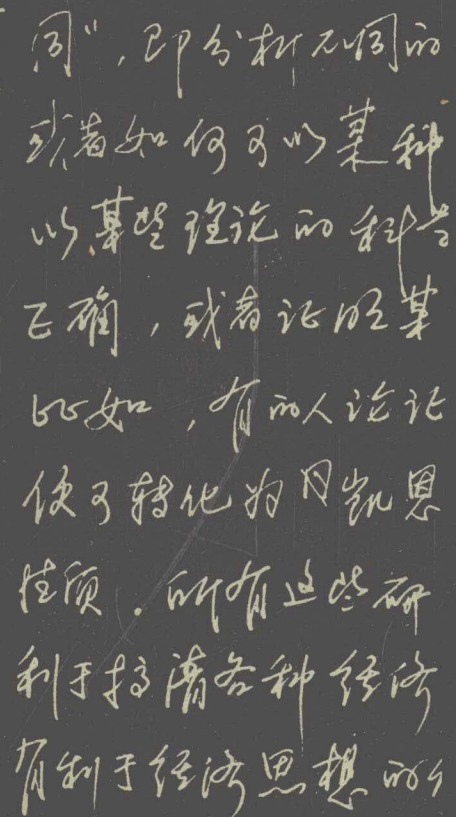 同”，即分析不同的
或者如何可以某种
以某些理论的科学
正确，或者证明某
比如，有的人论证
便可转化为月凯恩
性质。所有这些研
利于搞清各种经济
有利于经济思想的